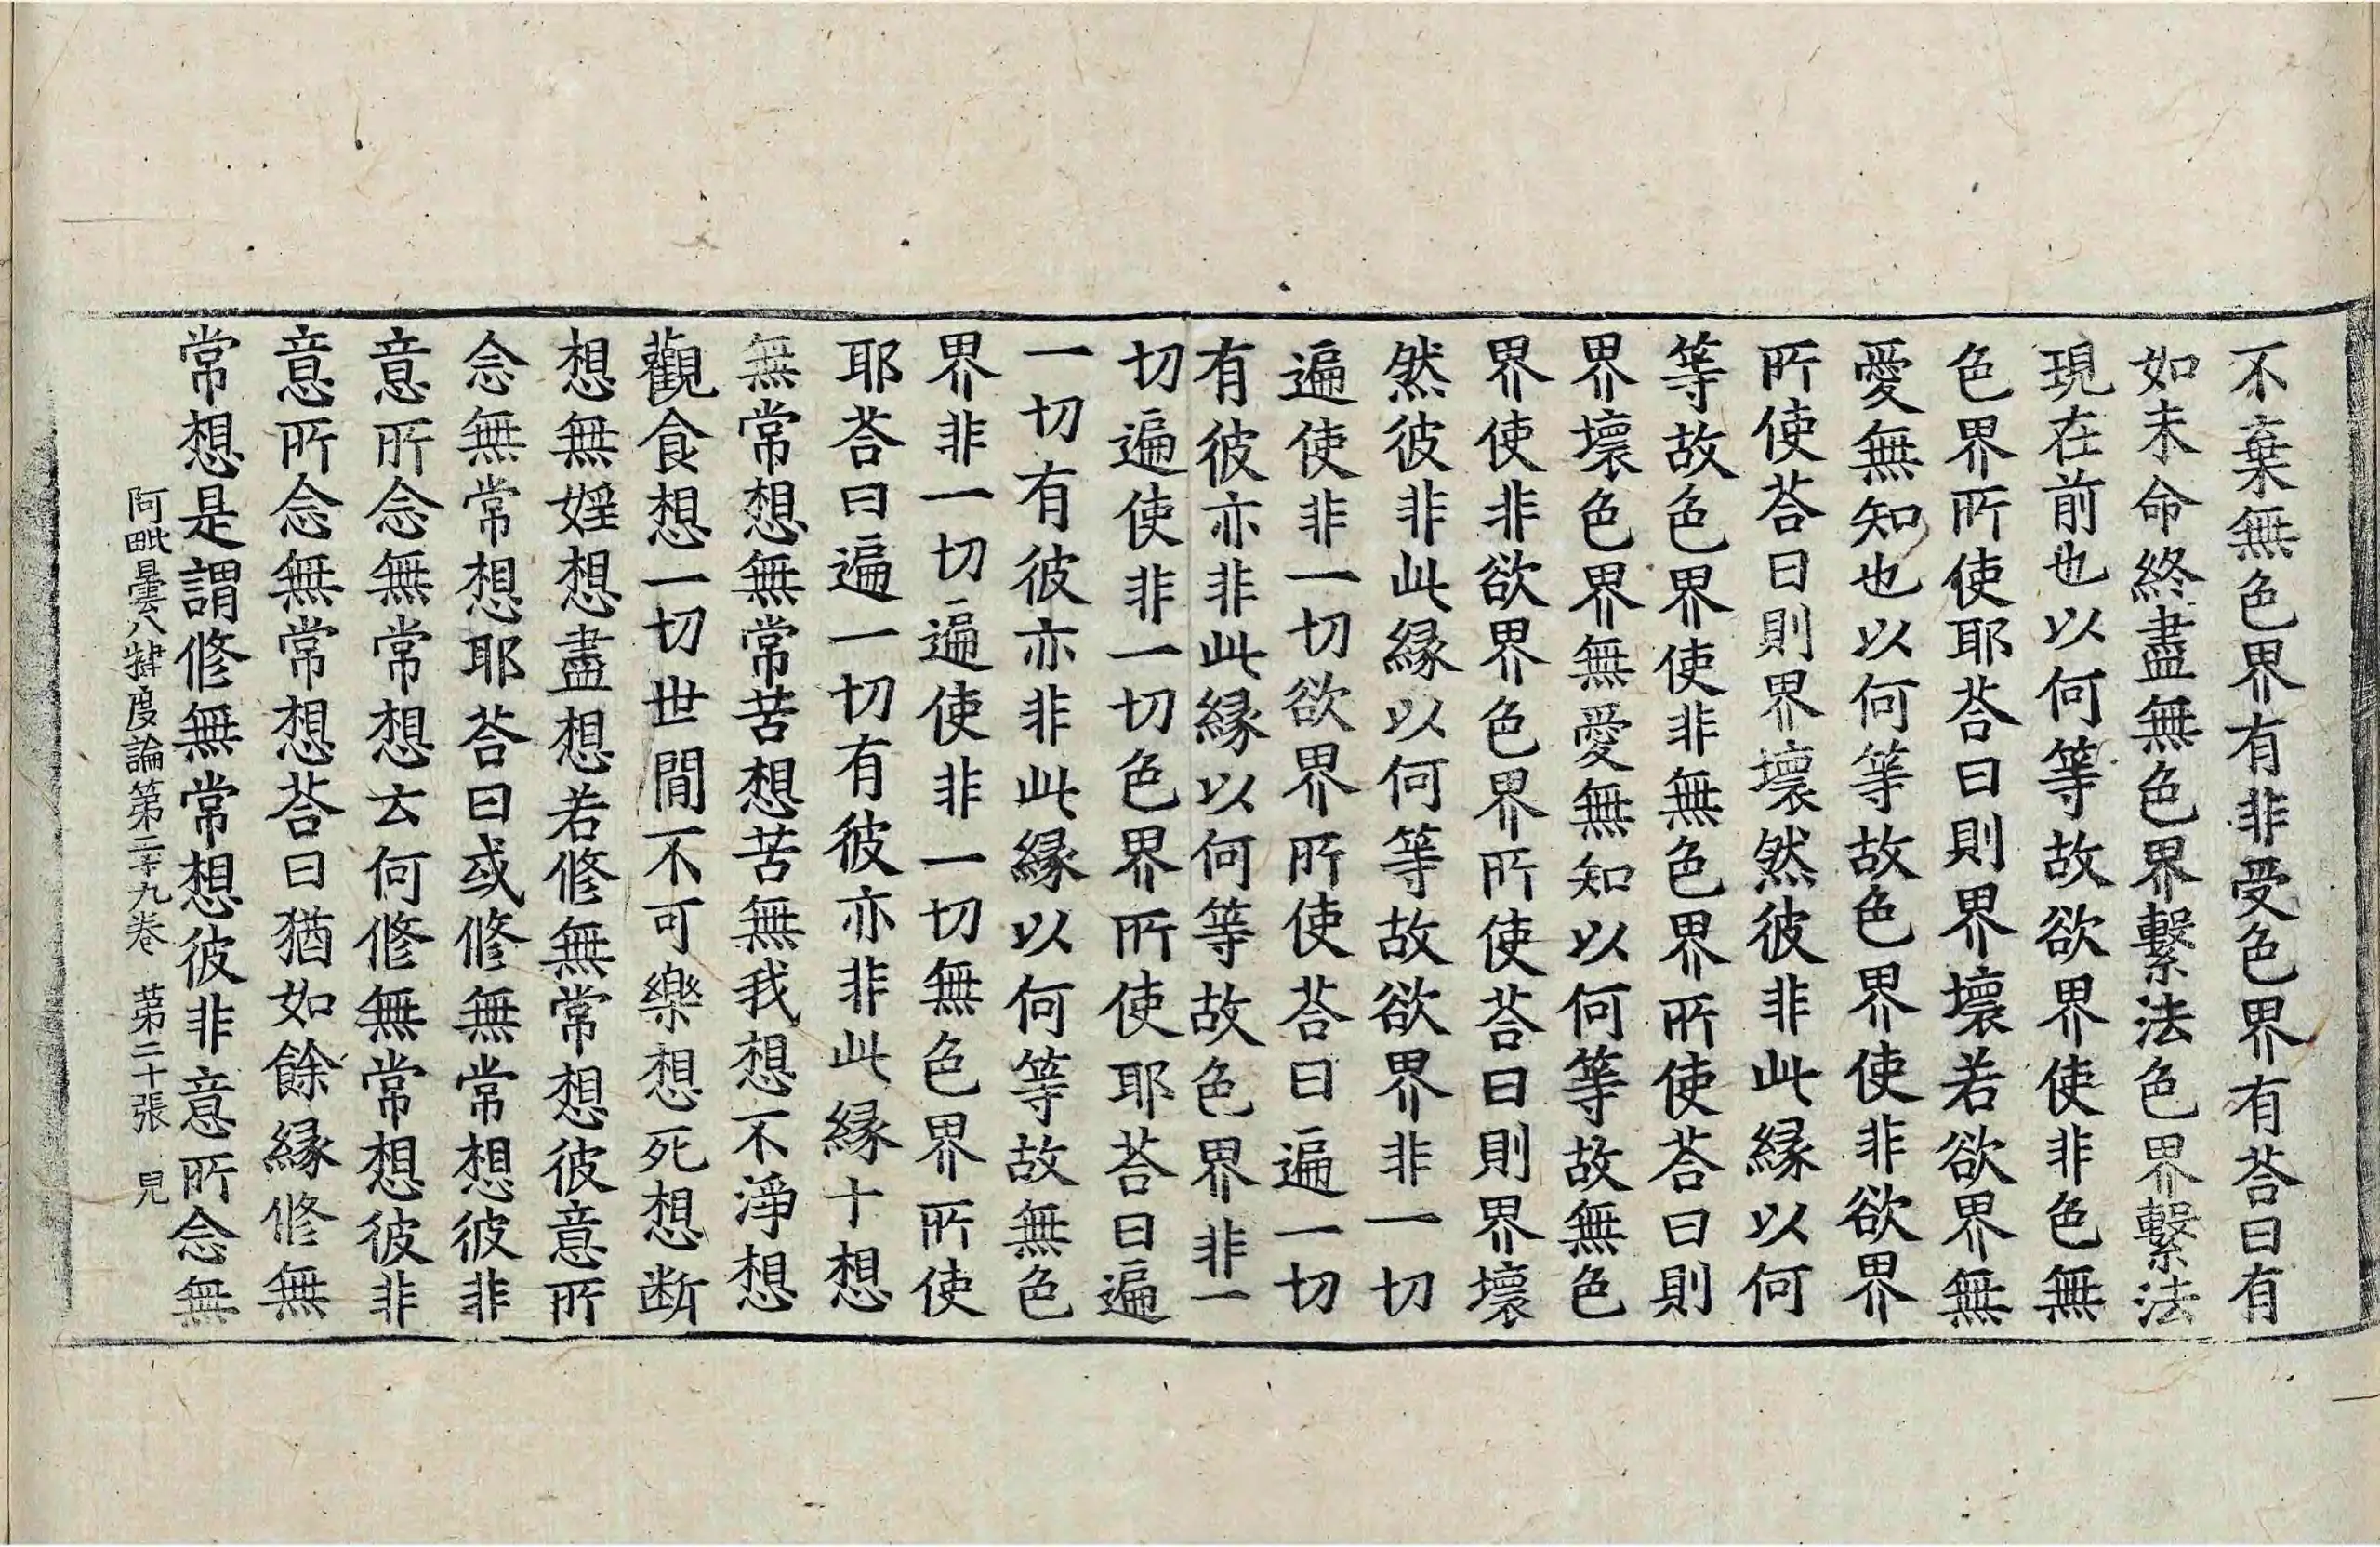 不棄無色界有非受色界有荅曰有
如未命終盡無色界繫法色界繫法
現在前也以何等故欲界使非色無
色界所使耶荅曰則界壞若欲界無
愛無知也以何等故色界使非欲界
所使荅曰則界壞然彼非此縁以何
等故色界使非無色界所使荅曰則
界壞色界無愛無知以何等故無色
界使非欲界色界所使荅曰則界壞
然彼非此縁以何等故欲界非一切
遍使非一切欲界所使荅曰遍一切
有彼亦非此縁以何等故色界非一
切遍使非一切色界所使耶荅曰遍
一切有彼亦非此縁以何等故無色
界非一切遍使非一切無色界所使
耶荅曰遍一切有彼亦非此縁十想
無常想無常苦想苦無我想不淨想
觀食想一切世間不可樂想死想断
想無婬想盡想若修無常想彼意所
念無常想耶荅曰或修無常想彼非
意所念無常想云何修無常想彼非
意所念無常想荅曰猶如餘縁修無
常想是謂修無常想彼非意所念無
阿毗曇八犍度論第二十九卷 苐二十張 皃